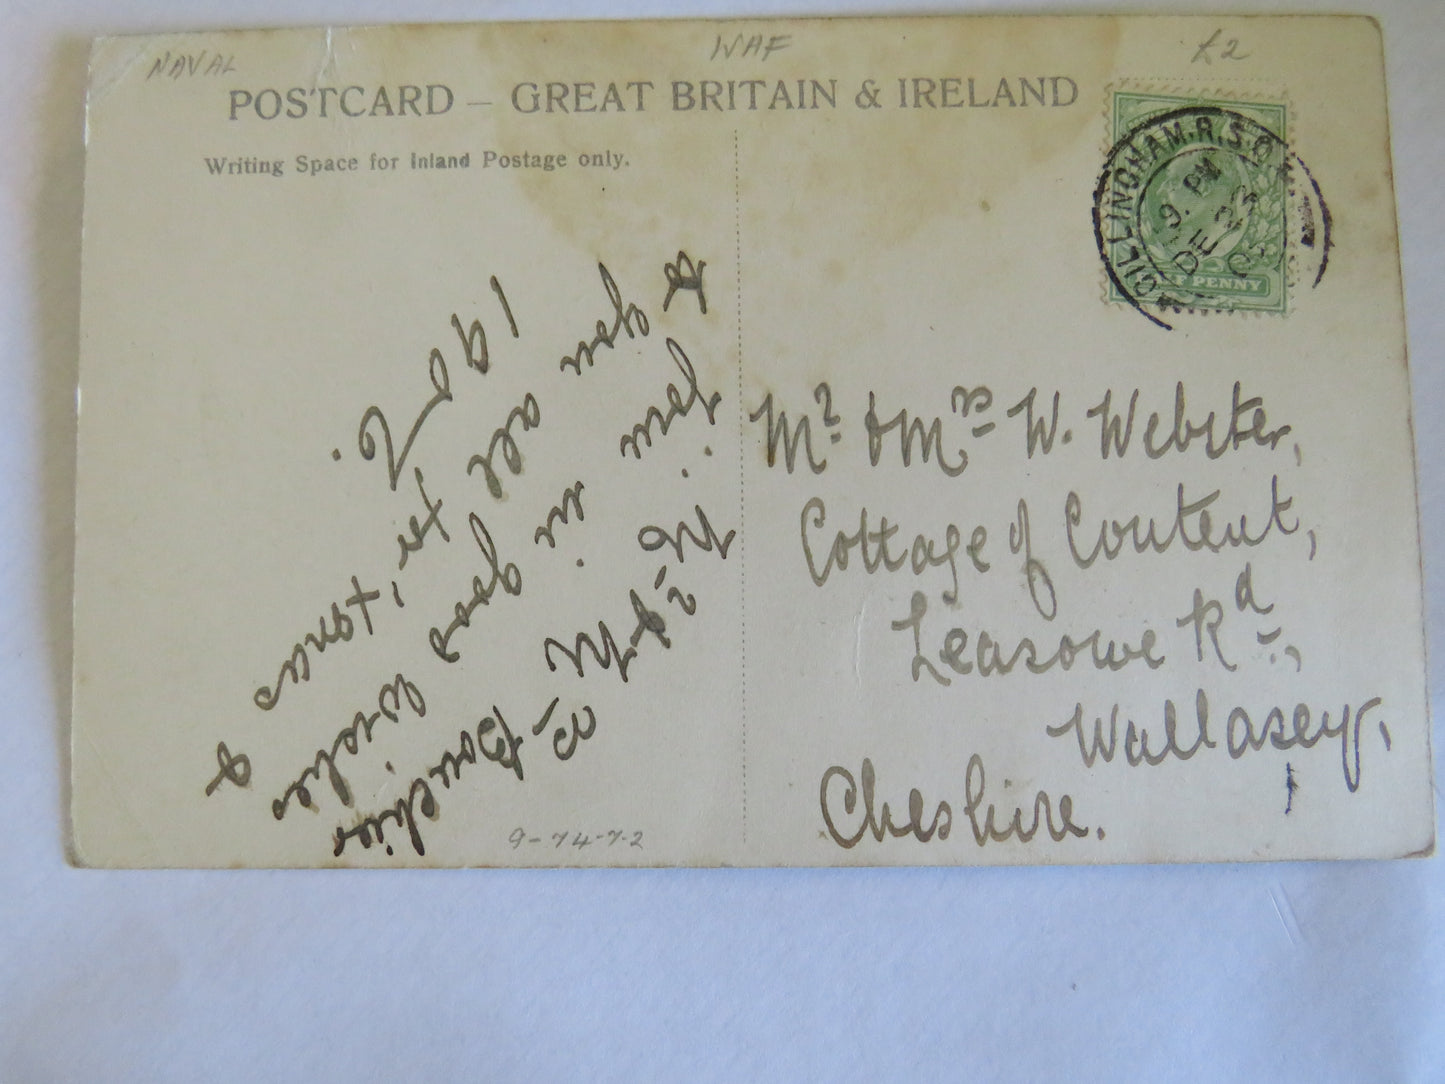 NAVAL
WAF
£2
POSTCARD – GREAT BRITAIN & IRELAND
Writing Space for Inland Postage only.
GILLINGHAM.R.S.O.
9. PM
DE 23
05
HALF PENNY
Mr & Mrs Bouchier
join in good wishes
to you all for 'Xmas &
1906.
Mr & Mrs W. Webster,
Cottage of Content,
Leasowe Rd,
Wallasey,
Cheshire.
9-74-72